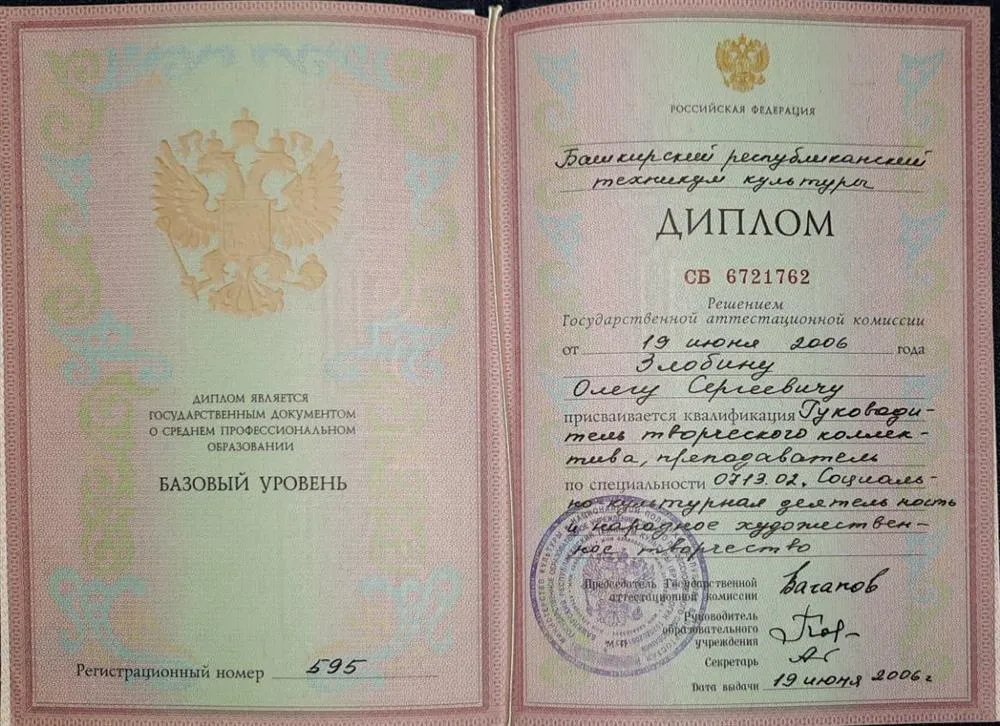 ДИПЛОМ ЯВЛЯЕТСЯ
ГОСУДАРСТВЕННЫМ ДОКУМЕНТОМ
О СРЕДНЕМ ПРОФЕССИОНАЛЬНОМ
ОБРАЗОВАНИИ
БАЗОВЫЙ УРОВЕНЬ
Регистрационный номер 595
РОССИЙСКАЯ ФЕДЕРАЦИЯ
Башкирский республиканский
техникум культуры
ДИПЛОМ
СБ 6721762
Решением
Государственной аттестационной комиссии
от 19 июня 2006 года
Злобину
Олегу Сергеевичу
присваивается квалификация Руководи-
тель творческого коллек-
тива, преподаватель
по специальности 0713.02. Социаль-
но-культурная деятельность
и народное художествен-
ное творчество
Председатель Государственной
аттестационной комиссии Вагапов
Руководитель
образовательного
учреждения
Секретарь
Дата выдачи 19 июня 2006 г